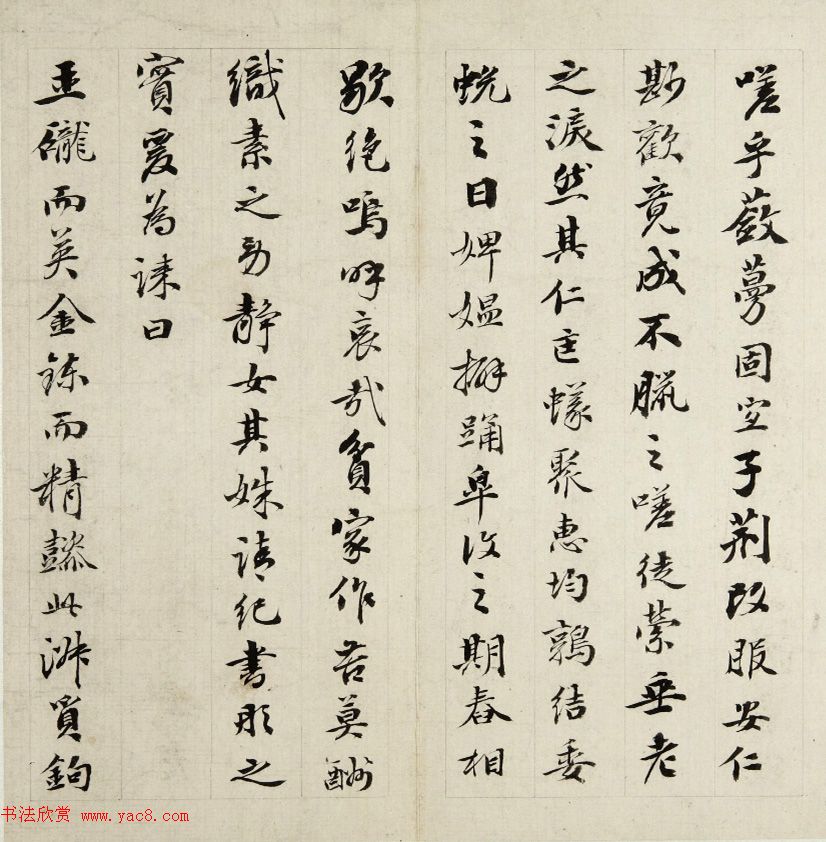 嗟乎蔹蔓固空子荆改服安仁
斟歡竟成不臘之嗟徒縈垂老
之淚然其仁能蟻聚惠均鶉結委
蛻之日婢媼擗踊皋復之期舂相
歇絶嗚呼哀哉貧家作苦莫酬
織素之勞静女其姝請纪書彤之
實爰為誄曰
玉礲而英金鍊而精懿此淑質鉤
书法欣赏 www.yac8.com